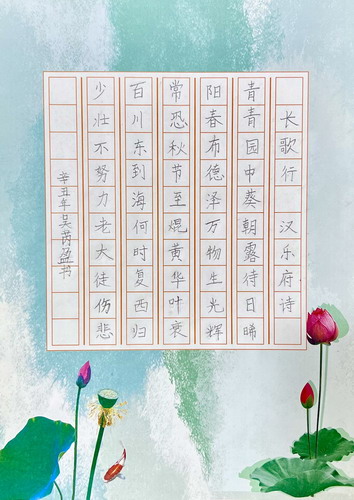 长歌行 汉乐府诗
青青园中葵朝露待日晞
阳春布德泽万物生光辉
常恐秋节至焜黄华叶衰
百川东到海何时复西归
少壮不努力老大徒伤悲
辛丑年吴芮盈书